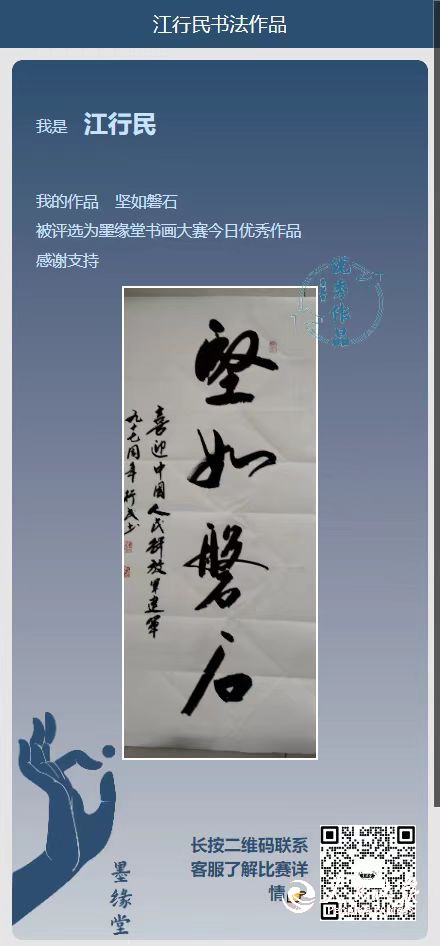 江行民书法作品
我是 江行民
我的作品 坚如磐石
被评选为墨缘堂书画大赛今日优秀作品
感谢支持
优秀作品
堅如磐石
喜迎中国人民解放军建军
九十七周年 行民书
长按二维码联系
客服了解比赛详
情
墨缘堂